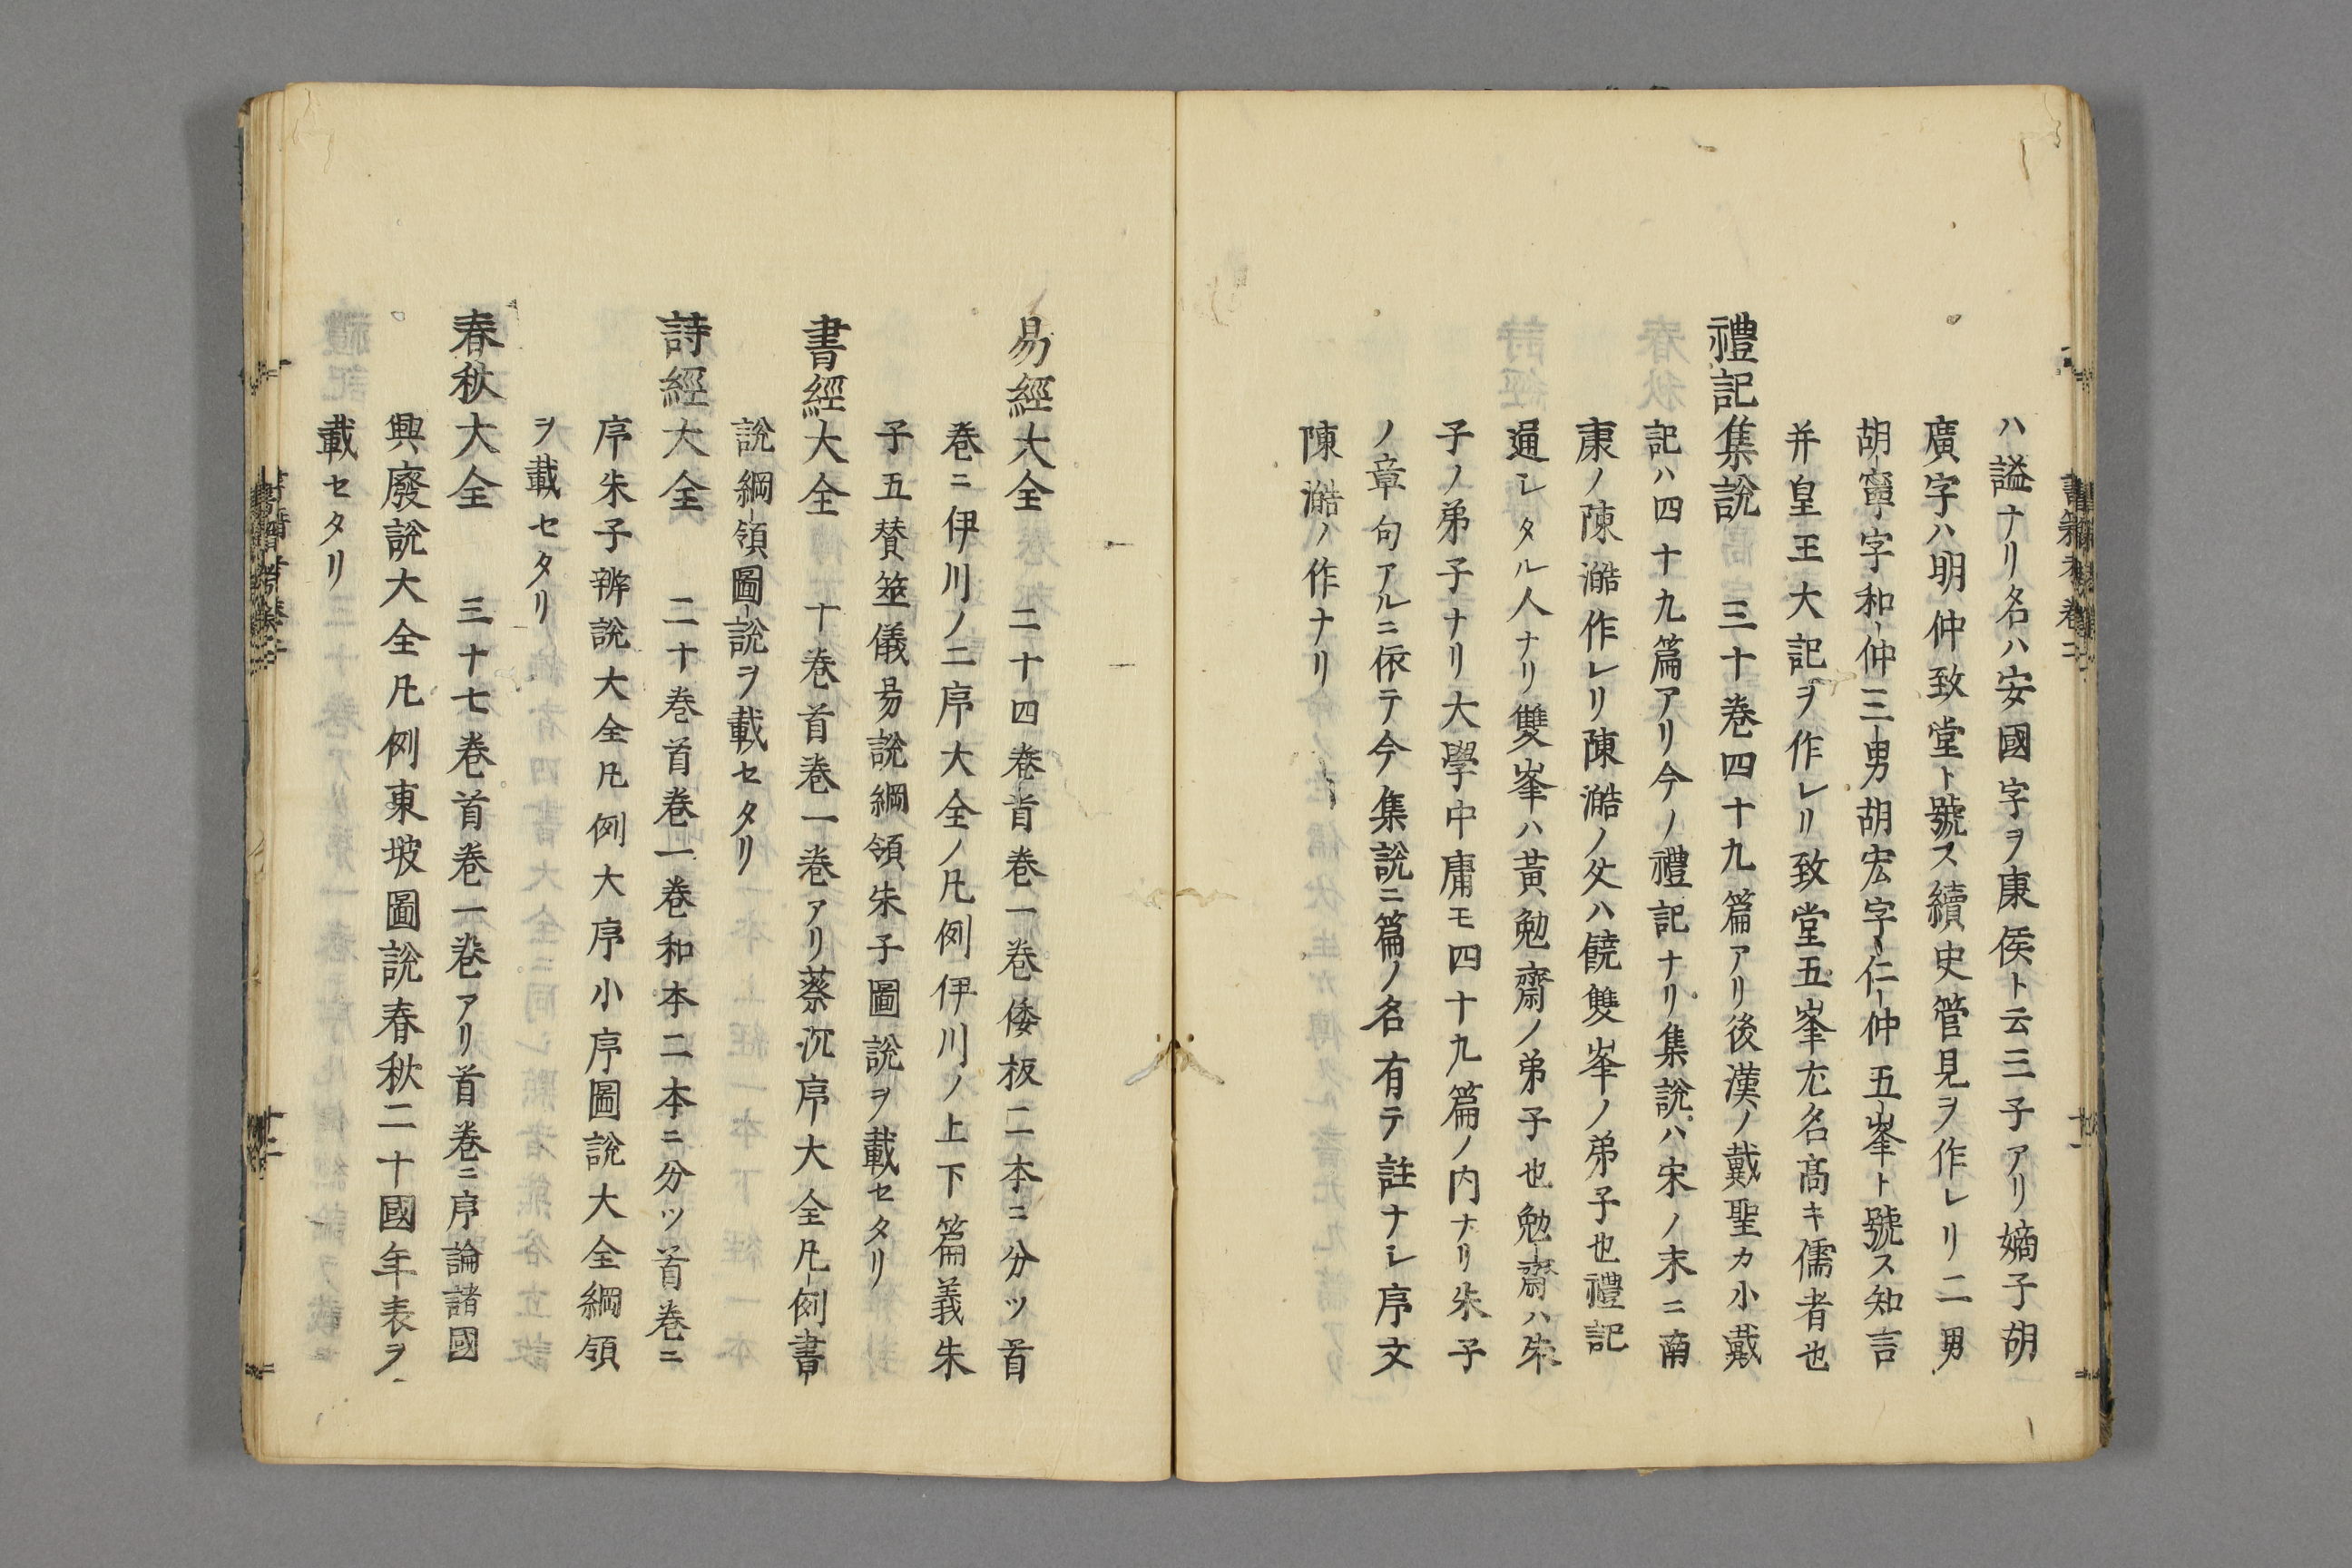 ハ謚ナリ名ハ安國字ヲ康侯ト云三子アリ嫡子胡
廣字ハ明仲致堂ト號ス續史管見ヲ作レリ二男
胡寧字和仲三男胡宏字仁仲五峯ト號ス知言
并皇王大記ヲ作レリ致堂五峯尤名髙キ儒者也
禮記集説 三十巻四十九篇アリ後漢ノ戴聖カ小戴
記ハ四十九篇アリ今ノ禮記ナリ集説ハ宋ノ末ニ南
康ノ陳澔作レリ陳澔ノ父ハ饒雙峯ノ弟子也禮記
通シタル人ナリ雙峯ハ黄勉齋ノ弟子也勉齋ハ朱
子ノ弟子ナリ大學中庸モ四十九篇ノ内ナリ朱子
ノ章句アルニ依テ今集説ニ篇ノ名有テ註ナシ序文
陳澔ノ作ナリ
易經大全 二十四巻首巻一巻倭板二本ニ分ツ首
巻ニ伊川ノ二序大全ノ凡例伊川ノ上下篇義朱
子五賛筮儀易説綱領朱子圖説ヲ載セタリ
書經大全 十巻首巻一巻アリ蔡沉序大全凡例書
説綱領圖説ヲ載セタリ
詩經大全 二十巻首巻一巻和本二本ニ分ツ首巻ニ
序朱子辨説大全凡例大序小序圖説大全綱領
ヲ載セタリ
春秋大全 三十七巻首巻一巻アリ首巻ニ序論諸國
興廢説大全凡例東坡圖説春秋二十國年表ヲ
載セタリ